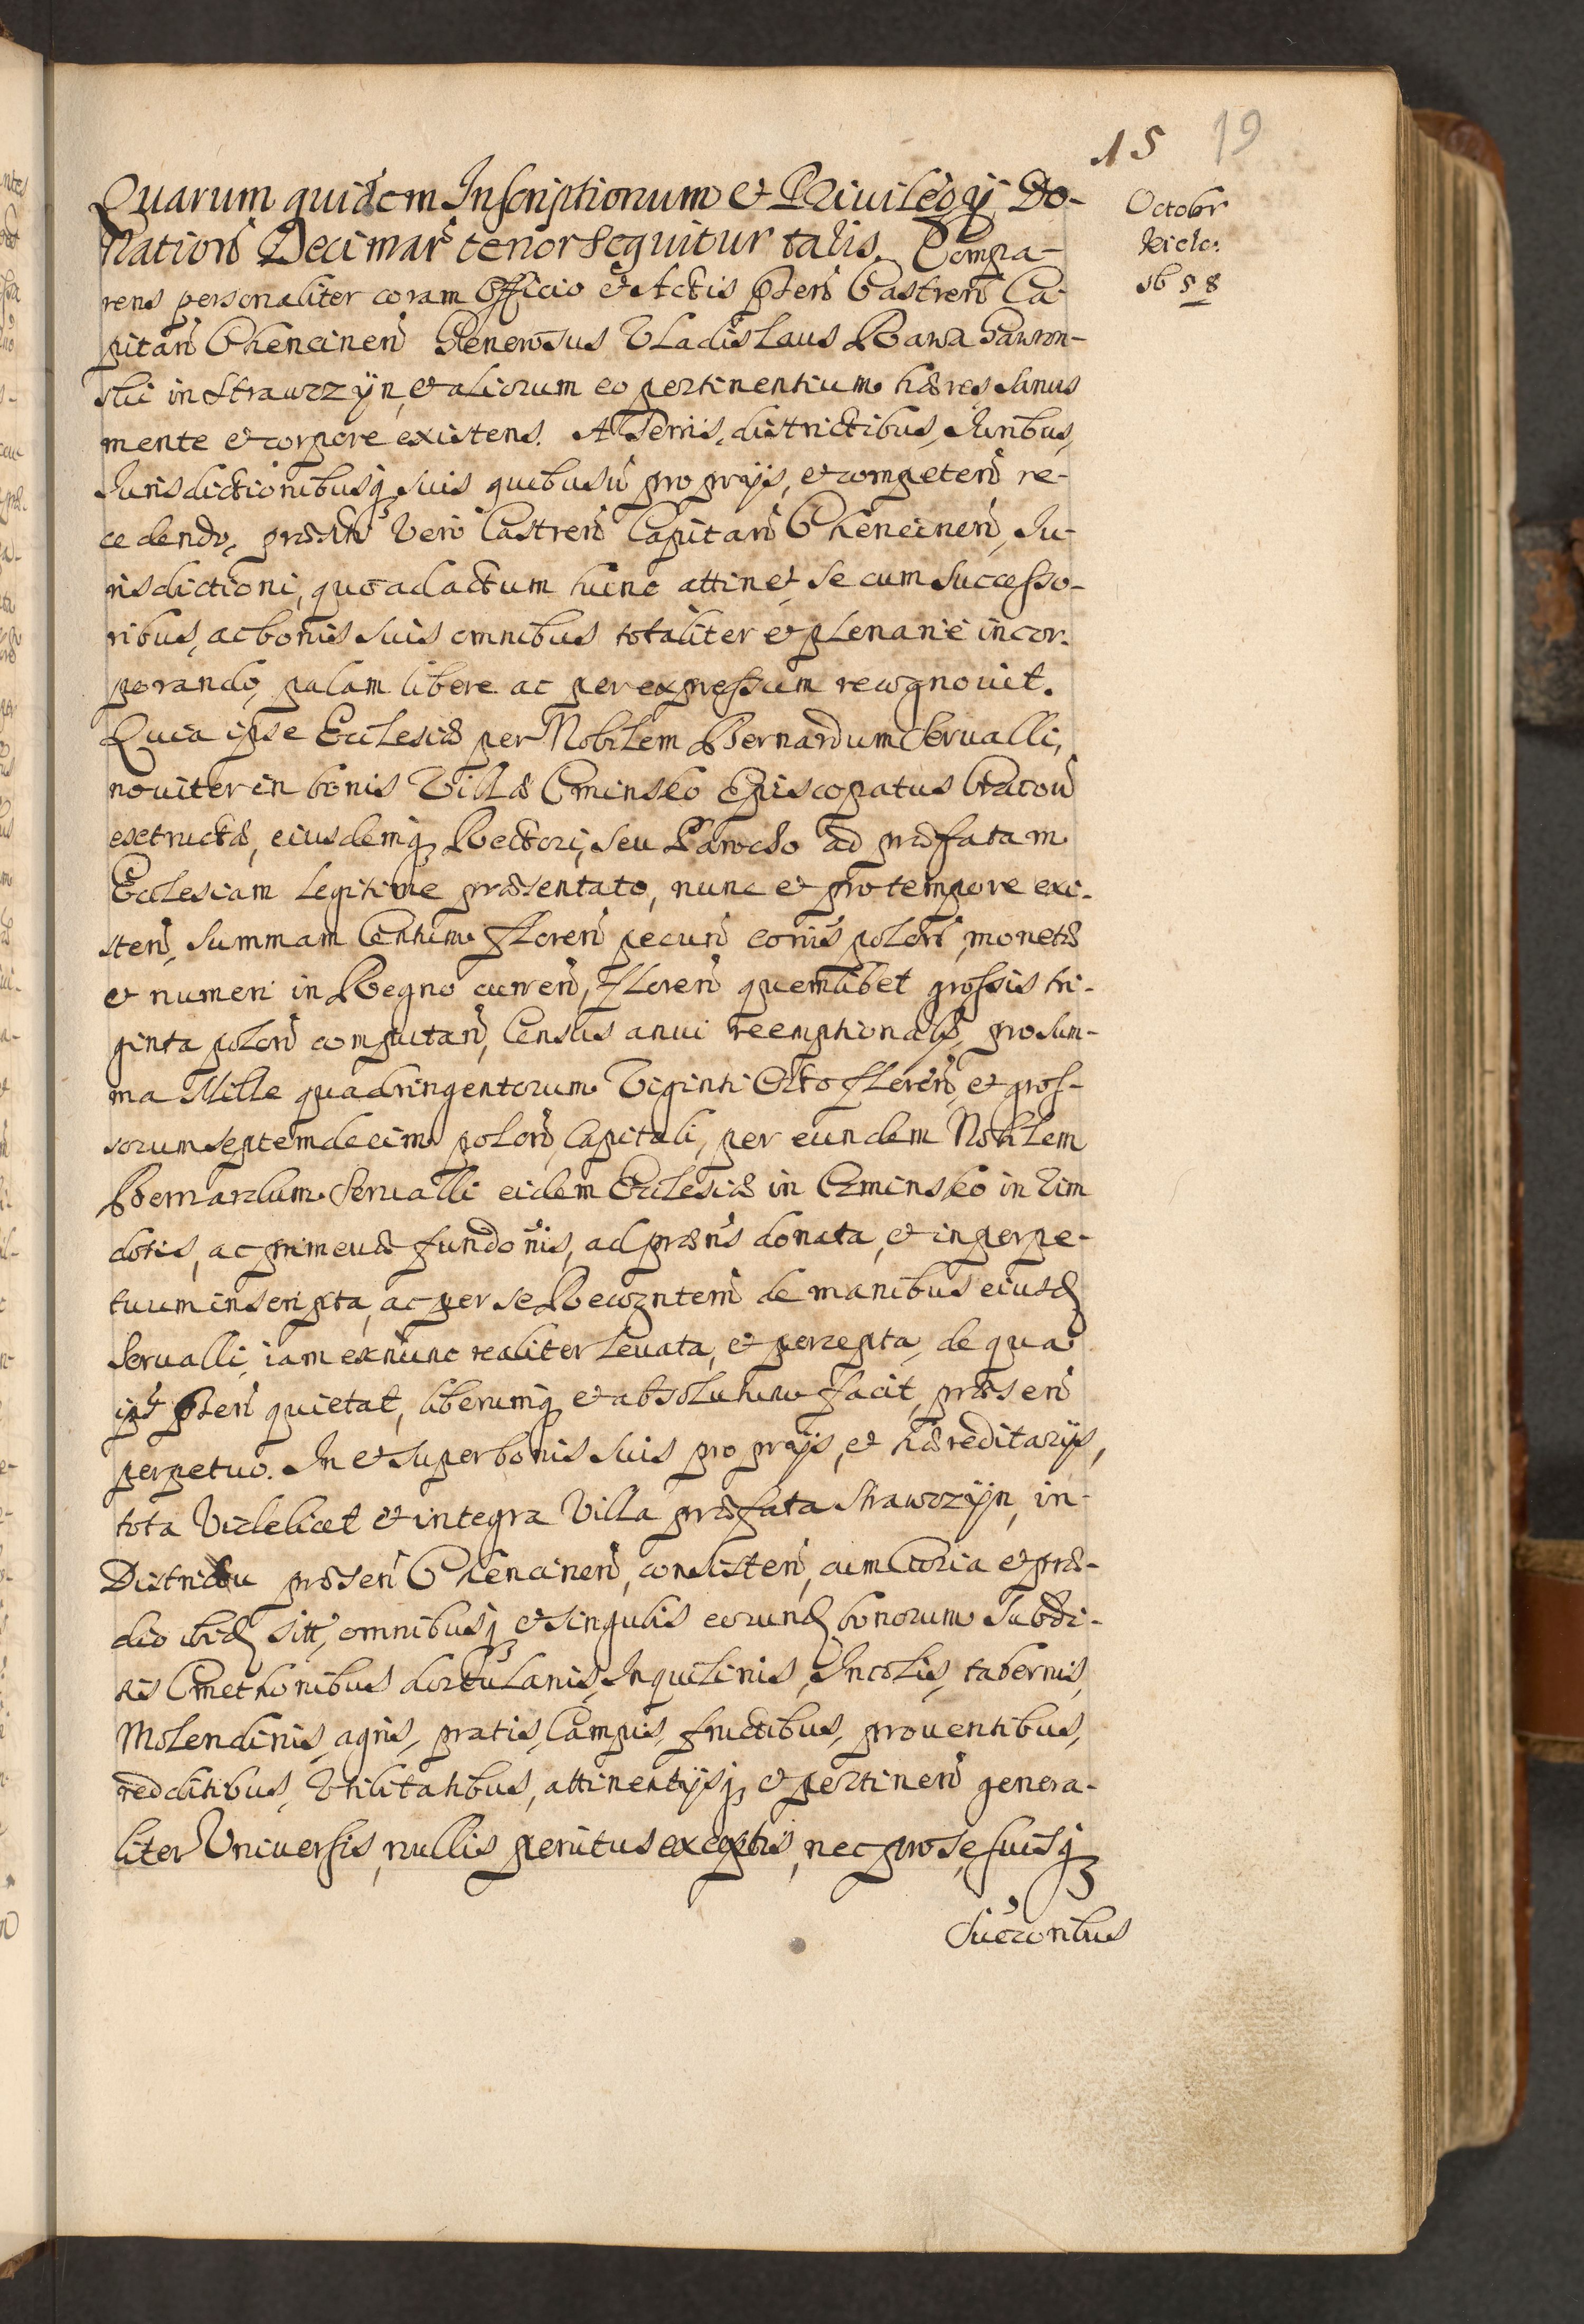 15 19
Octobr
Kielc:
1658
Quarum quidem Inscriptionum et Priuilegÿ Do-
nation Decimar tenor sequitur talis. Compa-
rens personaliter coram Officio et Actis pñten Castren Ca-
pitan Chencinen Generosus Vladislaus Rawa Gawron-
ski in Strawczÿn, et aliorum eo pertinentium hæres, sanus
mente et corpore existens. A Terris, districtibus, Iuribus,
Iurisdictionibusq suis quibusuis proprÿs, et competen re-
cedendo, præsñti vero Castren Capitan Chencinen, Iu-
risdictioni, quo ad actum hunc attinet, se cum successo-
ribus, ac bonis suis omnibus totaliter et plenarie incor-
porando, palam libere ac per expressum recognouit.
Quia ipse Ecclesiæ per Nobilem Bernardum Serualli,
nouiter in bonis Villæ Cminsko Episcopatus Cracou
exstructæ, eiusdemq Rectori, seu Parocho ad præfatam
Ecclesiam legitime præsentato, nunc et pro tempore exi-
sten, summam Centum floren pecun cõnis polon, monetæ
et numeri in Regno curren, floren quemlibet grossis tri-
ginta polon computan, Census anui reemptionalis, pro sum-
ma Mille quadringentorum Viginti Octo floren, et gros-
sorum septemdecim polon, Capitali, per eundem Nobilem
Bernardum Serualli eidem Ecclesiæ in Cminsko in vim
dotis, ac primeuæ fundõnis, ad præns donata, et in perpe-
tuum inscripta, ac per se Recogntem de manibus eiusd
Serualli, iam ex nunc realiter leuata, et percepta, de qua
ipse pñten quietat, liberumq et absolutum facit, præsen
perpetuo. In et super bonis suis proprÿs, et hæreditarÿs,
tota videlicet et integra Villa præfata Strawczÿn, in
Districtu præsen Chencinen, consisten, cum Curia et præ-
dio ibid sitt, omnibusq et singulis eorund bonorum Subdi-
tis Cmethonibus Hortulanis, Inquilinis, Incolis, tabernis,
Molendinis, agris, pratis, Campis, fructibus, prouentibus,
redditibus, Vtilitatibus, attinentÿsq, et pertinen genera-
liter Vniuersis, nullis penitus exceptis, nec pro se, suisq
Sucçoribus